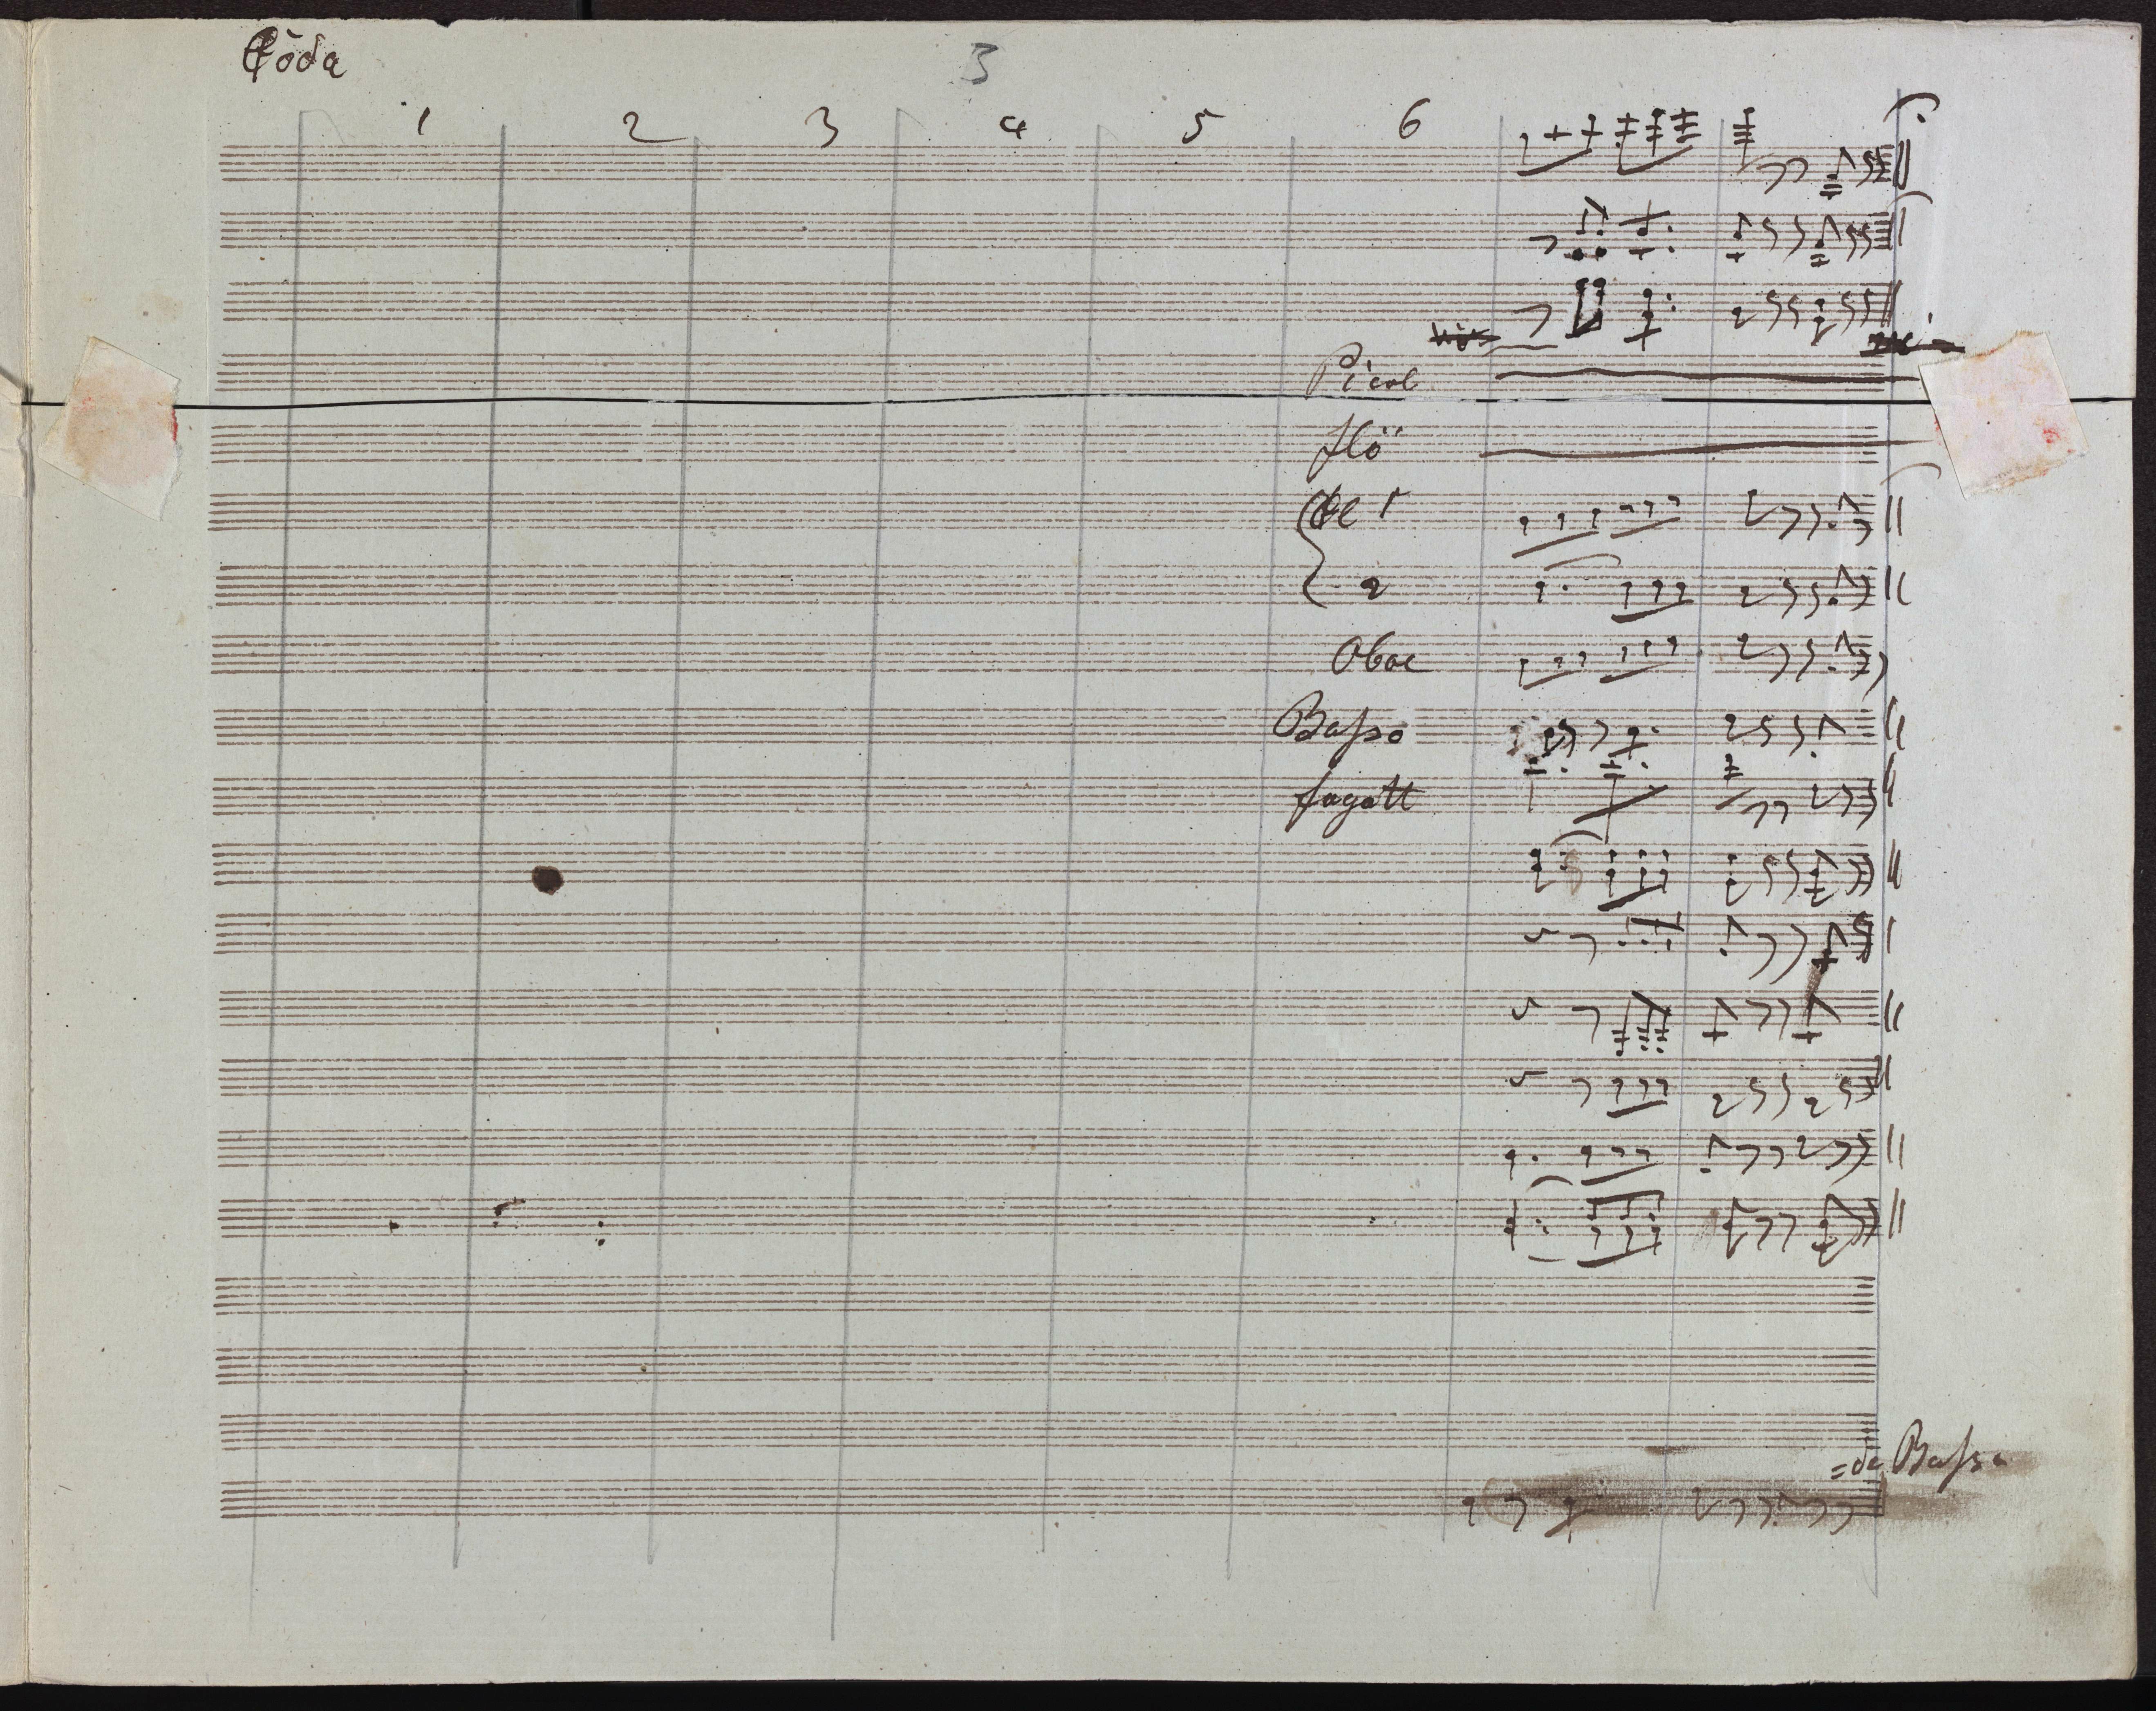 Coda
3
1 2 3 4 5 6
Picol
flö
Cl 1
2
Oboe
Basso
fagott
Basso